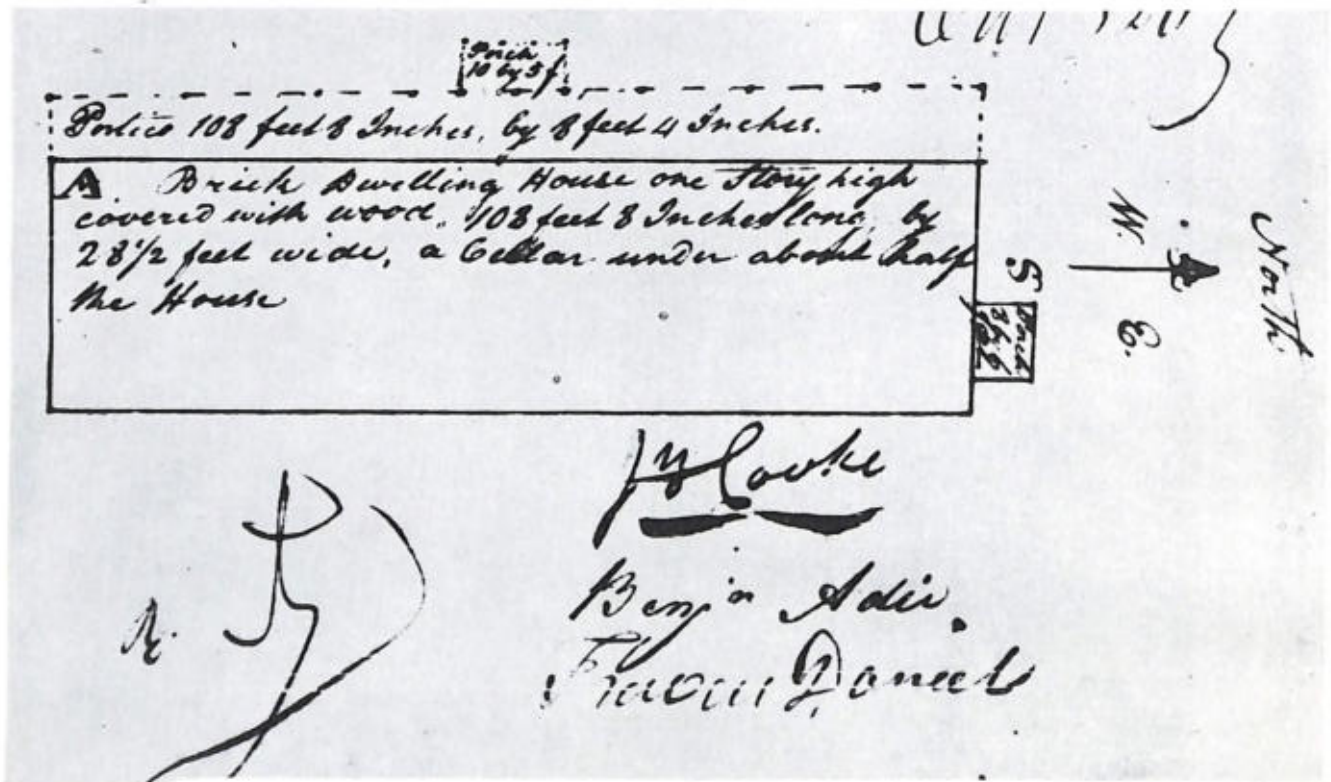 Porch
10 by 5 f
Portico 108 feet 8 Inches, by 8 feet 4 Inches.
A Brick Dwelling House one Story high
covered with wood, 108 feet 8 Inches long, by
28 1/2 feet wide, a Cellar under about half
the House
Porch
W.
S
E.
North
Cooke
Benjn Adie
Daniels